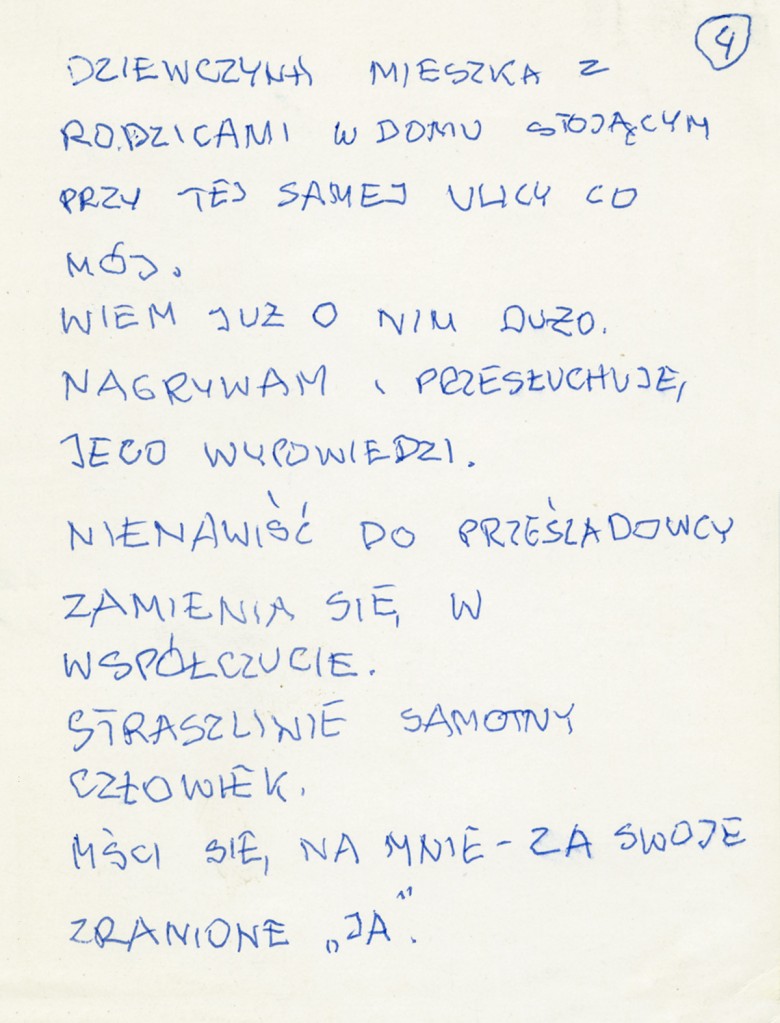 4
DZIEWCZYNA MIESZKA Z
RODZICAMI W DOMU STOJĄCYM
PRZY TEJ SAMEJ ULICY CO
MÓJ.
WIEM JUŻ O NIM DUŻO.
NAGRYWAM I PRZESŁUCHUJĘ
JEGO WYPOWIEDZI.
NIENAWIŚĆ DO PRZEŚLADOWCY
ZAMIENIA SIĘ W
WSPÓŁCZUCIE.
STRASZLINIE SAMOTNY
CZŁOWIEK.
MŚCI SIĘ NA MNIE - ZA SWOJE
ZRANIONE „JA".